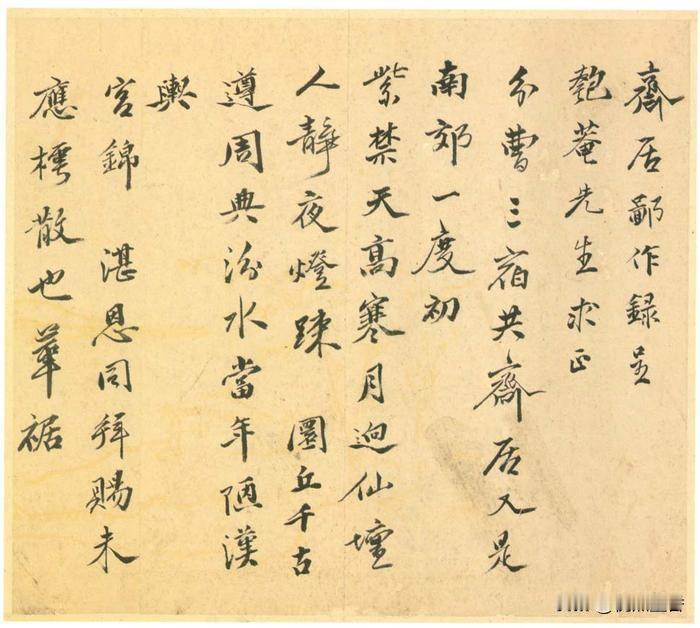 齋居鄙作録呈
匏菴先生求正
分曹三宿共齋居又是
南郊一度初
紫禁天高寒月迥仙壇
人靜夜燈踈 圜丘千古
遵周典汾水當年陋漢
輿
宮錦 湛恩同拜賜未
應樗散也華裾